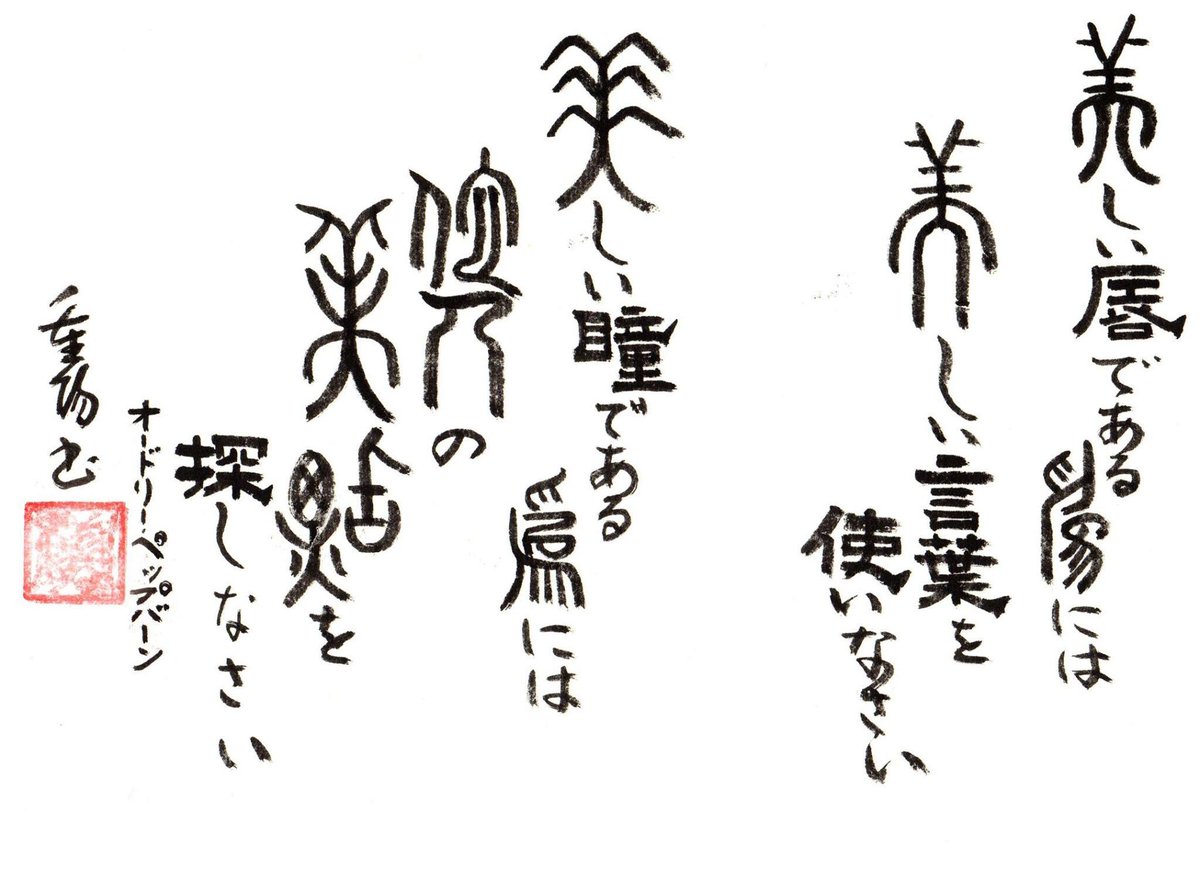 美しい唇である
為には
美しい言葉を
使いなさい
美しい瞳である
為には
他人の
美点を
探しなさい
オードリー・ペップバーン
重陽書